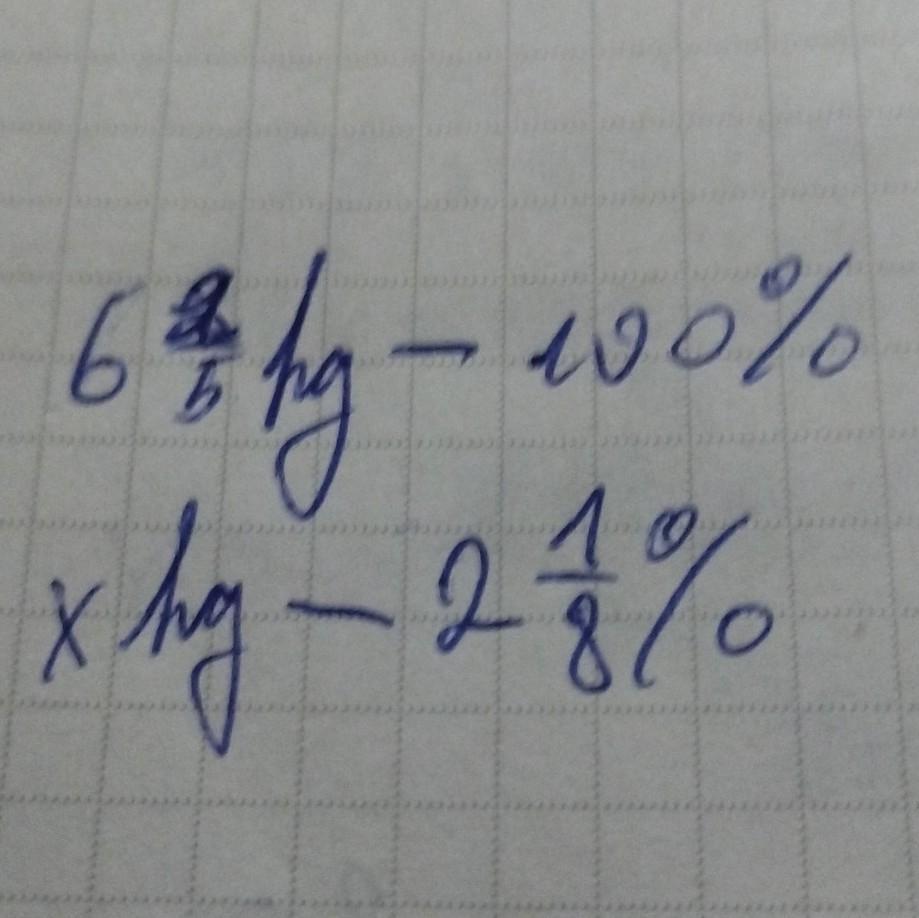 6 2/5 hg - 100%
x hg - 2 1/8 %